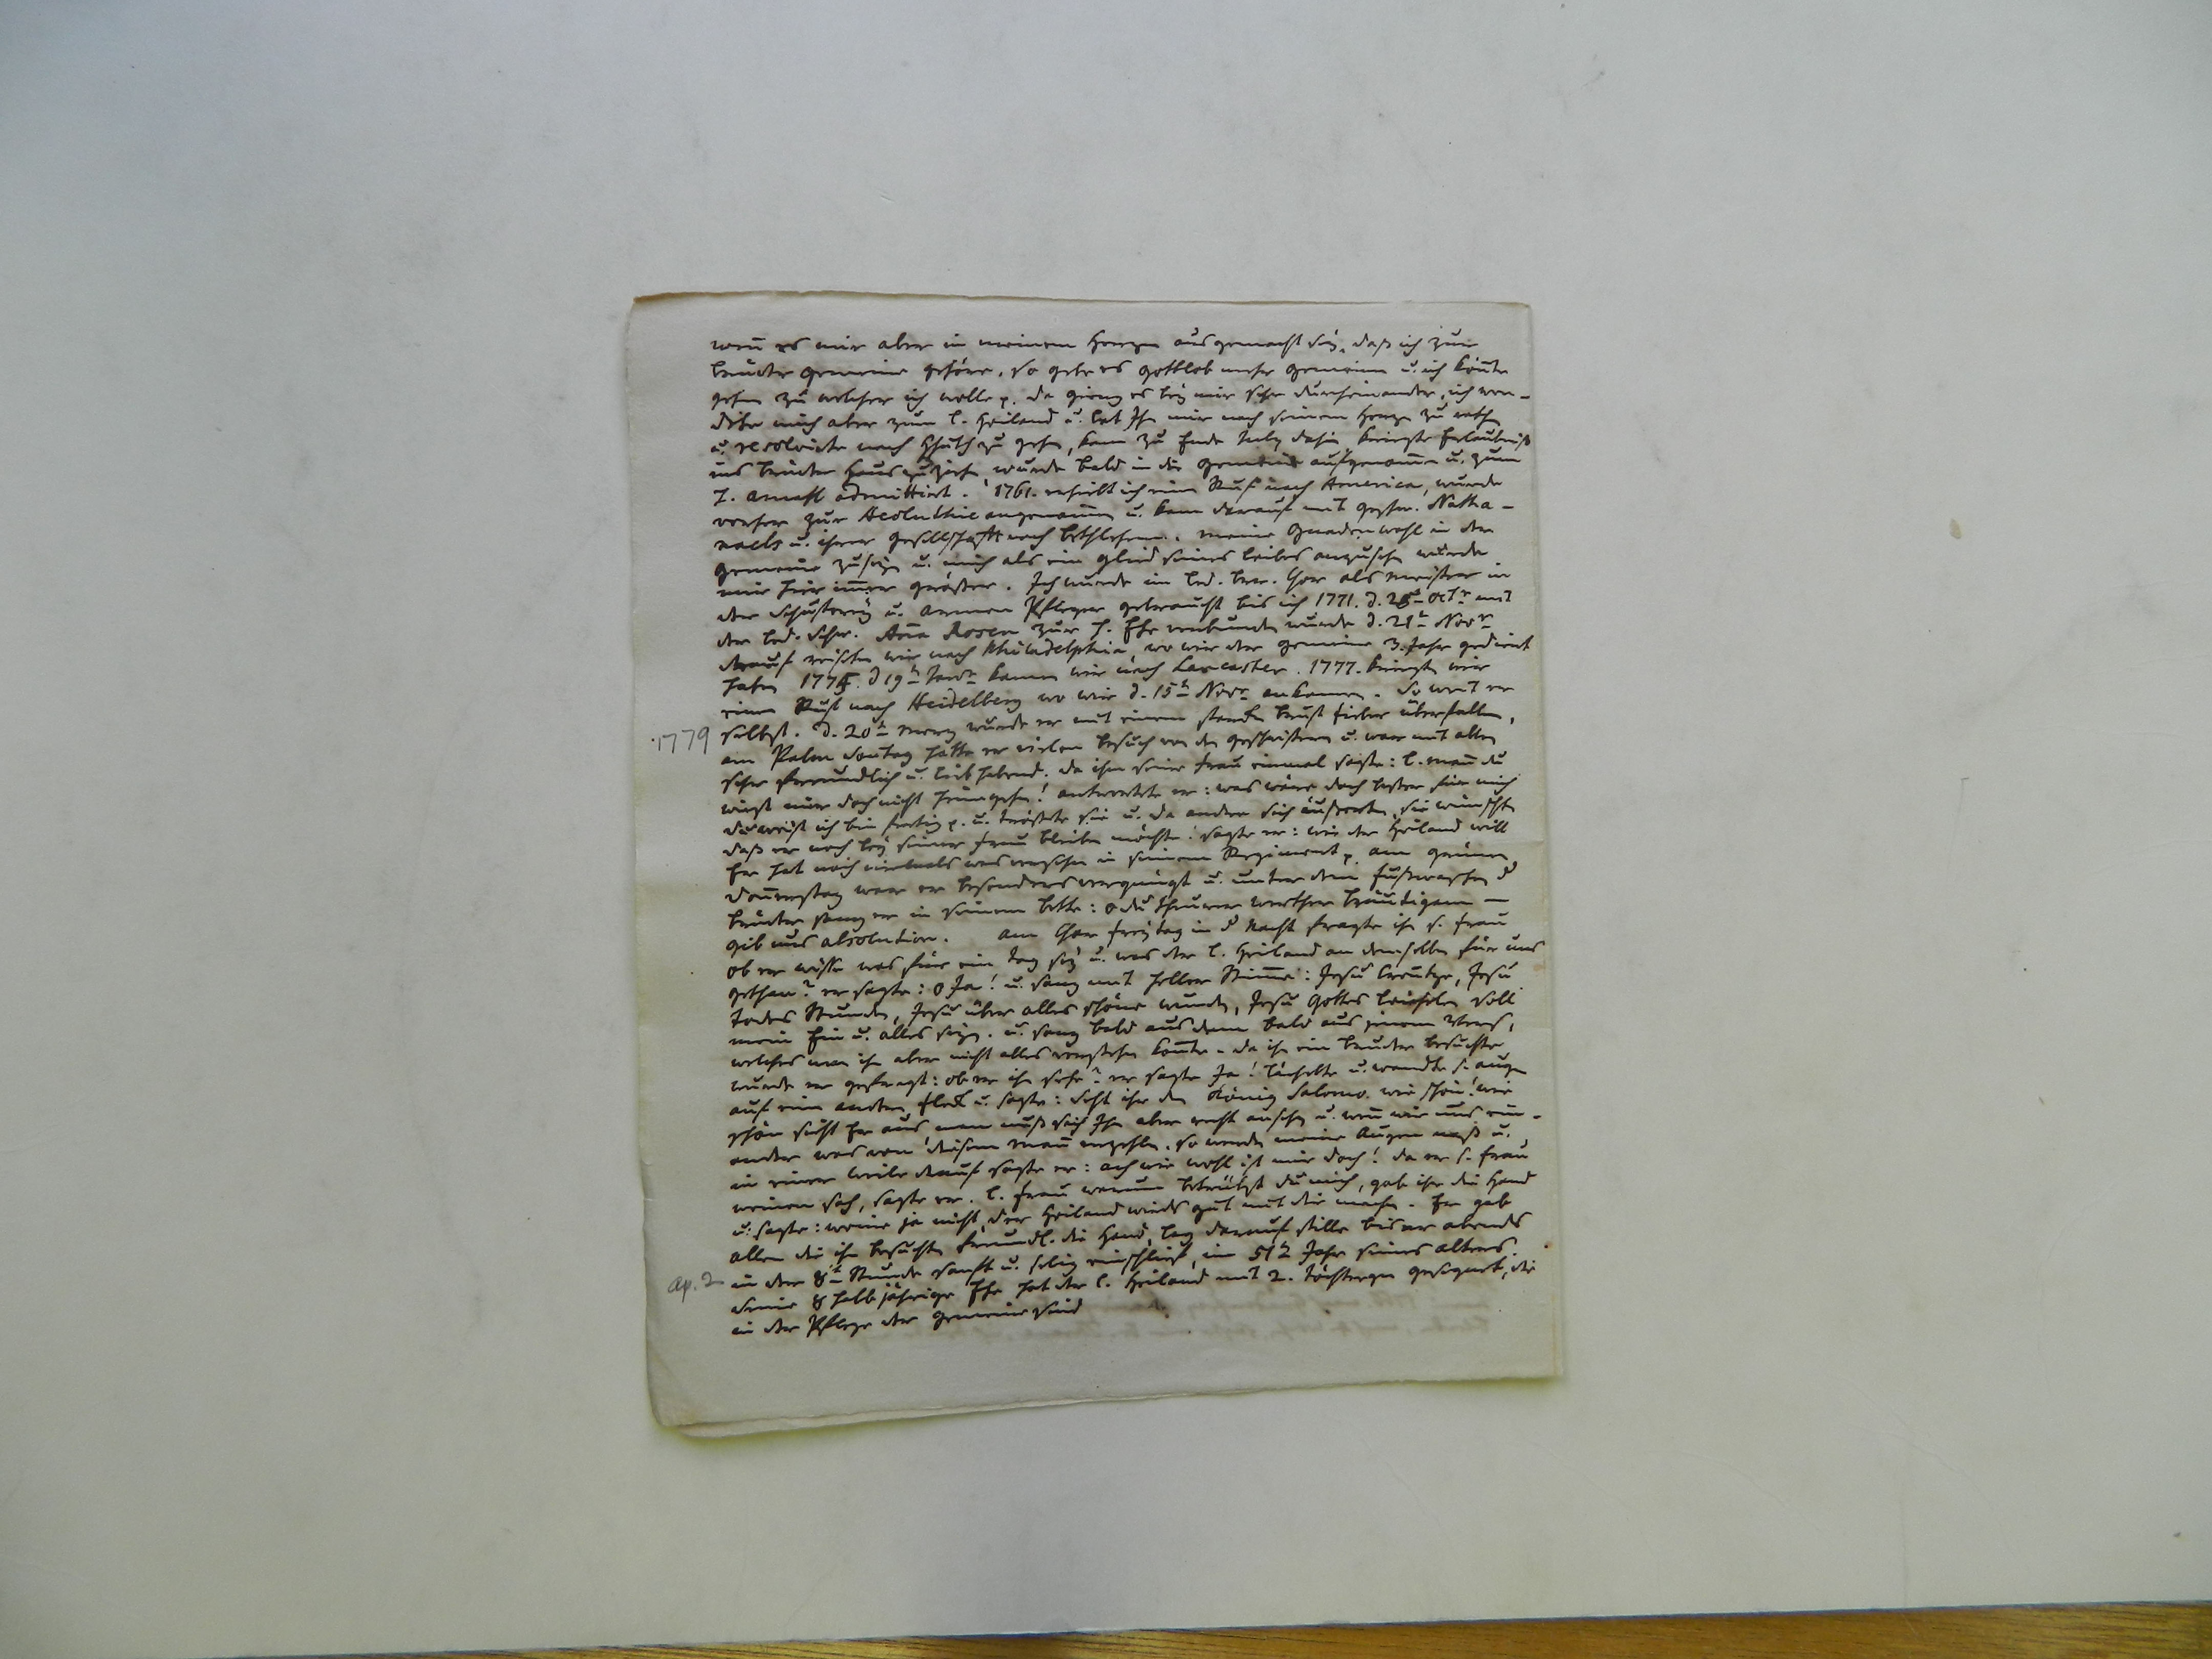 wen̄ es mir aber in meinem Herzen ausgemacht sey, daß ich zur
Brüder Gemeine gehöre, so gebe es gottlob mehr Gemeinen u. ich kön̄te
gehen zu welcher ich wolle p. da gieng es bey mir sehr durcheinander, ich wen-
dete mich aber zum l. Heiland u. bat Ihn mir nach seinem Herzen zu rathen
u. resolvirte nach Hhuth zu gehen, kam zu Ende July dahin, kriegte Erlaubniß
ins Brüder Haus zu ziehen, wurde bald in die Gemeine aufgenom̄en u. zum
H. Amahl admittirt. 1761. erhielt ich einen Ruf nach America, wurde
vorher zur Acoluthie angenom̄en u. kam darauf mit Geschw. Natha-
naels u. ihrer Gesellschaft nach Bethlehem. meine Gnadenwahl in der
Gemeine zu seyn u. mich als ein Glied seines Leibes anzusehen wurde
mir hier im̄er grösser. Ich wurde im led. Brr. Chor als Meister in
der Schusterey u. Armen Pfleger gebraucht bis ich 1771. d. 25t Octr mit
der led. Schw. An̄a Rosen zur H. Ehe verbunden wurde d. 21t Novr
drauf reisten wir nach Philadelphia, wo wir der Gemeine 3. Jahr gedient
haben 1775. d 19t Janr kamen wir nach Lancaster. 1777. kriegten wir
einen Ruf nach Heidelberg wo wir d. 15t Novr ankamen. So weit er
1779 selbst. d. 20t Merz wurde er mit einem starken Brust Fieber überfallen,
am Palm Sontag hatte er vielen Besuch von den Geschwistern u. war mit allen
sehr freundlich u. liebhabend. da ihm seine Frau einmal sagte: l. Man̄ du
wirst mir doch nicht heimgehen! antwortete er: was wäre doch besser für mich
du weist ich bin fertig p. u. tröstete sie u. da andere sich äußerten, sie wünschten
daß er noch bey seiner Frau bleiben möchte! sagte er: wie der Heiland will
Er hat noch niemals was versehen in seinem Regiment p. am grünen
Don̄erstag war er besonders vergnügt u. unter dem Fußwaschen d
Brüder sang er in seinem Bette: o du theurer werther Bräutigam —
gib uns absolution. am Char Freytag in d Nacht fragte ihn s. Frau
ob er wisse was für ein Tag sey u. was der l. Heiland an demselben für uns
gethan? er sagte: o Ja! u. sang mit heller Stim̄e: Jesu Creutze, Jesu
Todes Stunden, Jesu über alles schöne Wunden, Jesu Gottes Leichelein soll
mein Ein u. alles seyn. u. sang bald aus dem bald aus jenem Vers,
welches man ihn aber nicht alles verstehen konte. da ihn ein Bruder besuchte
wurde er gefragt: ob er ihn sehe? er sagte Ja! lächelte u. wandte s. Augen
auf einen andern Fleck u. sagte: seht ihr den König Salomo. wie schön! wie
schön sieht Er aus man muß sich Ihn aber recht ansehen u. wen̄ wir uns ein-
ander was von diesem Man̄ erzehlen, so werden meine Augen naß u.
in einer Weile drauf sagte er: ach wie wohl ist mir doch! da er s. Frau
weinen sah, sagte er. l. Frau warum betrübst du mich, gab ihr die Hand
u. sagte: weine ja nicht, der Heiland wirds gut mit dir machen. Er gab
allen die ihn besuchten freundl. die Hand, lag darauf stille bis er abends
Ap. 2 in der 8t Stunde sanft u. selig einschlief, im 51t Jahr seines Alters.
Seine 8 halb jährige Ehe hat der l. Heiland mit 2. Töchtergen gesegnet, die
in der Pflege der Gemeine sind